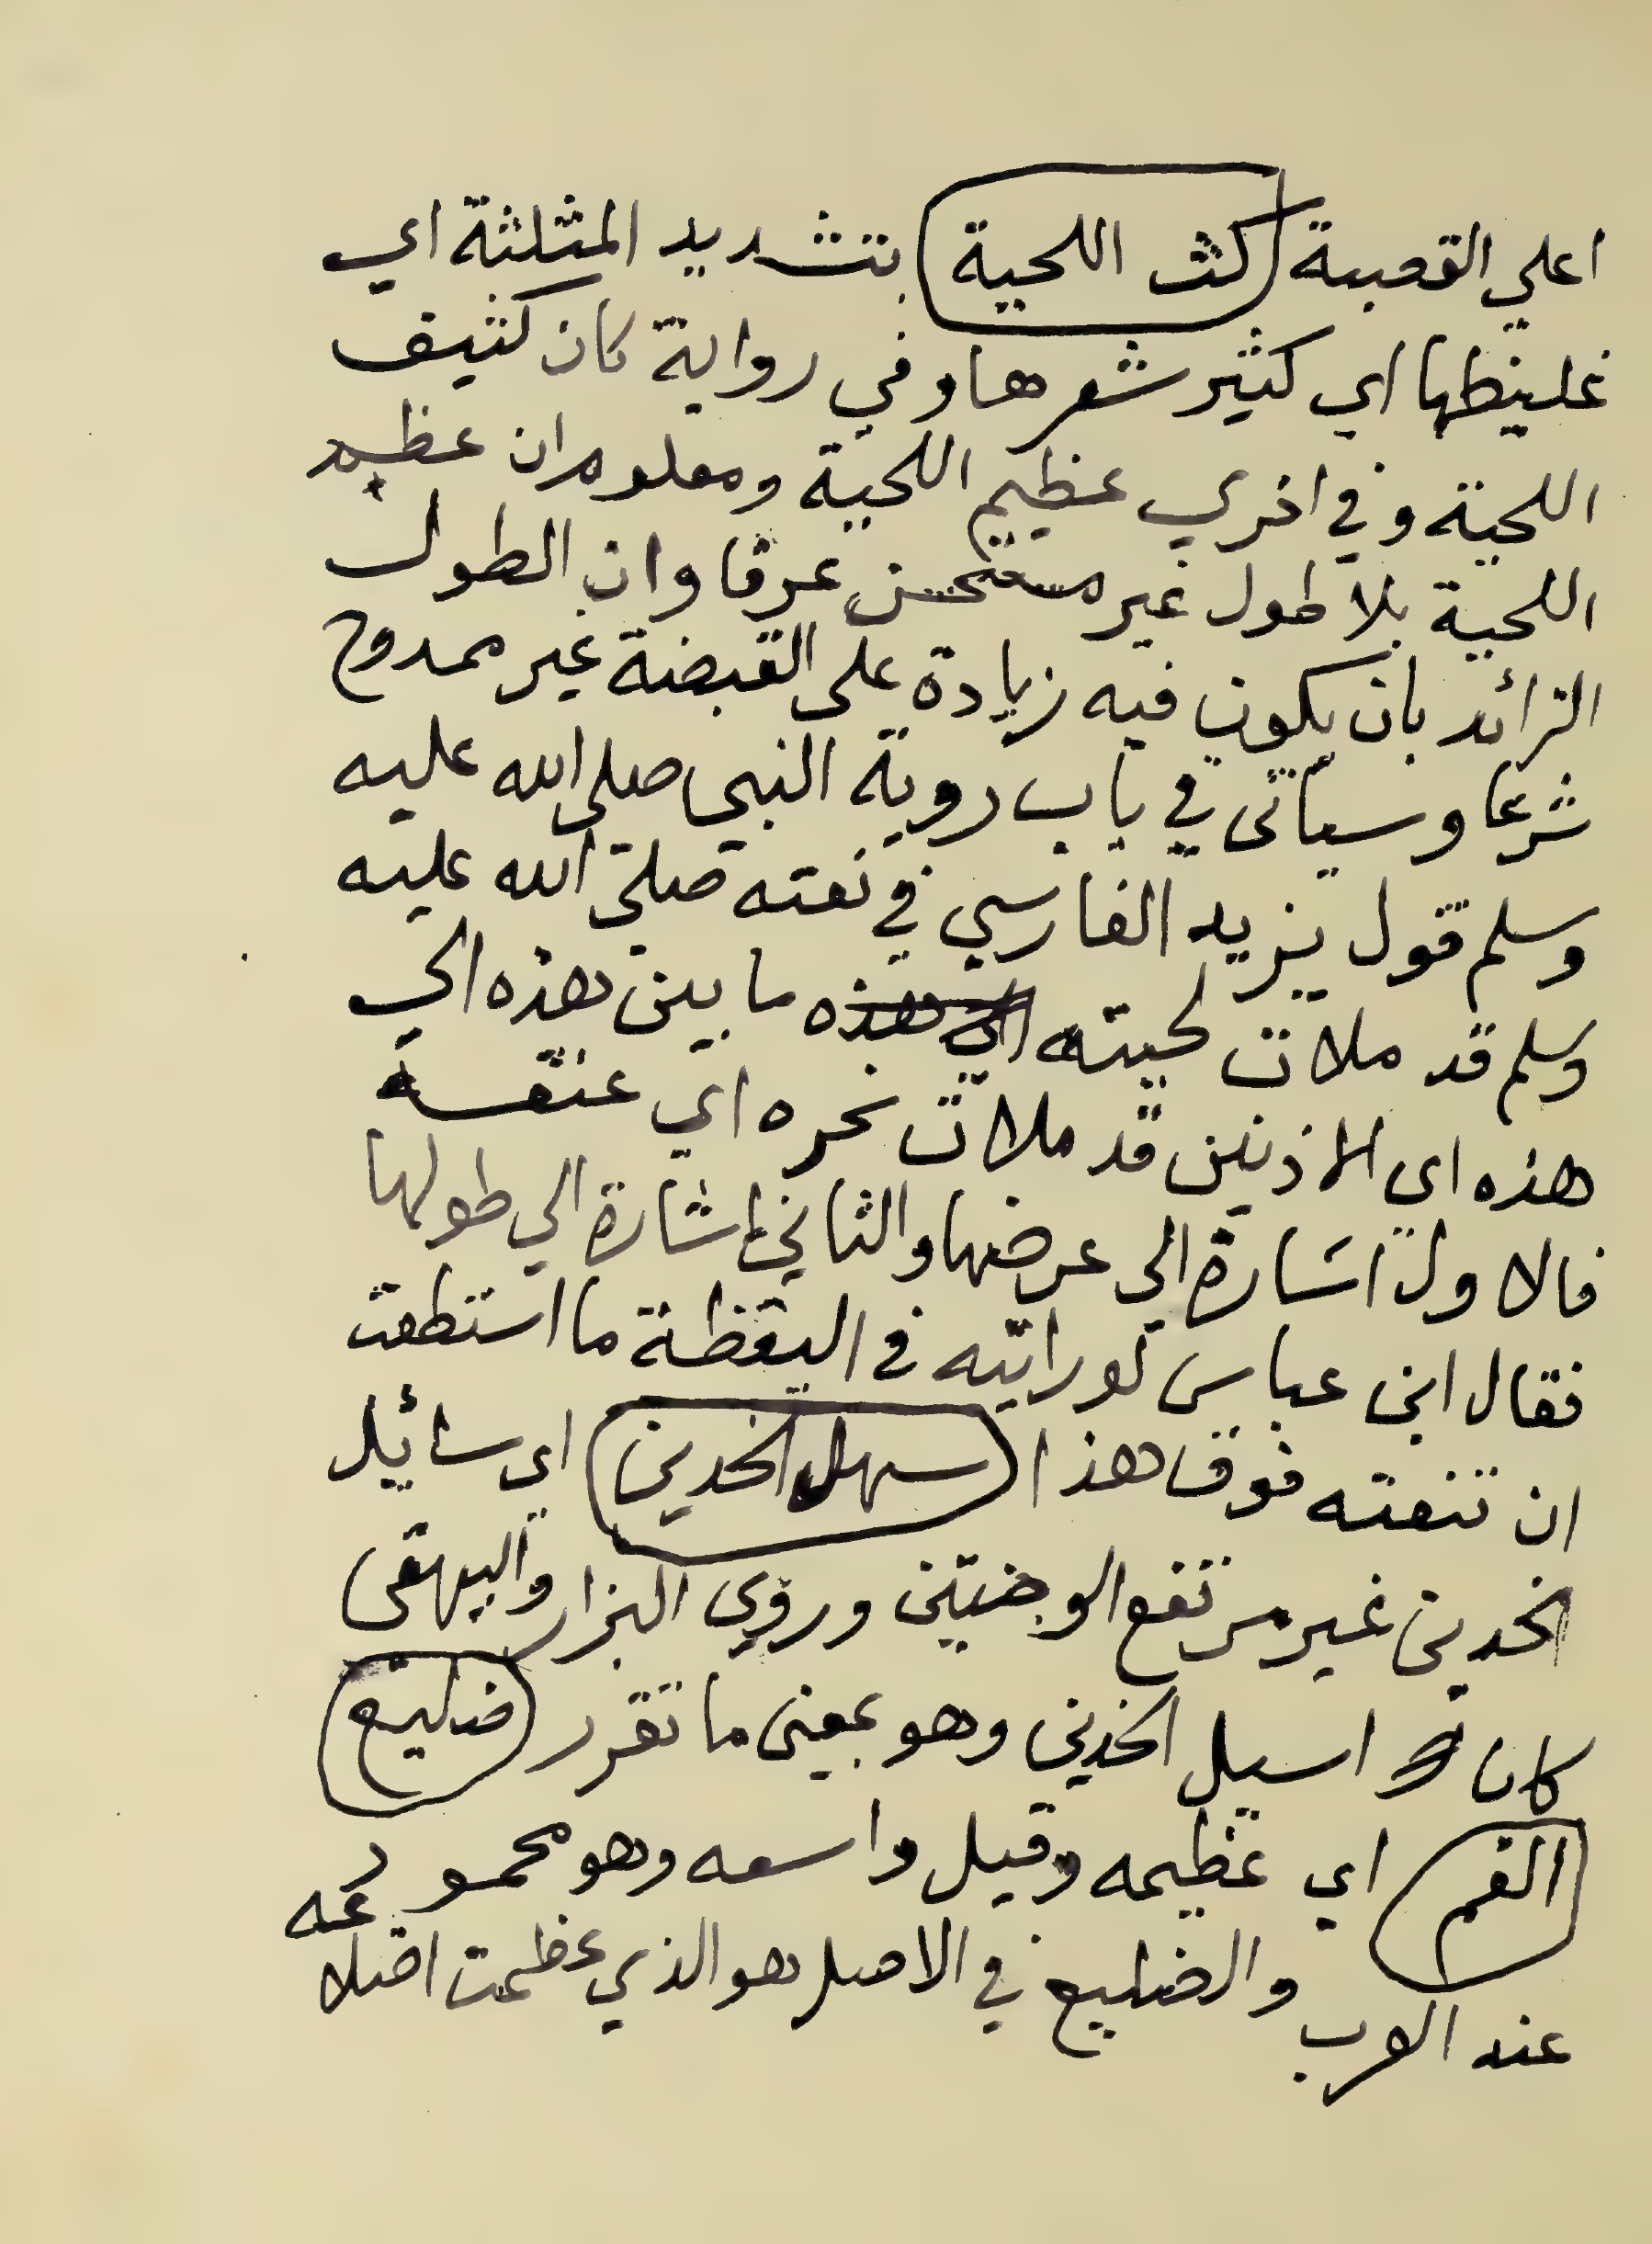 اعلي القصبة كث اللحية بتشديد المثلثة اي
غليظها اي كثير شعرها وفي رواية كان كثيف
اللحية وفي اخري عظيم اللحية ومعلوم ان عظيم
اللحية بلا طول غير مستحسن عرفا وان الطول
الزائد بان يكون فيه زيادة على القبضة غير ممدوح
شرعا وسيأتى في باب روية النبي صلى الله عليه
وسلم قول يزيد الفارسي في نعته صلى الله عليه
وسلم قد ملات لحيته ما بين هذه الي
هذه اى الاذنين قد ملات نحره اي عنقه
فالاول اشارة الي عرضها والثاني اشارة الي طولها
فقال ابن عباس لو رايته في اليقظة ما استطعت
ان تنعته فوق هذا سهل الخدين اى سائل
الخدين غير مرتفع الوجنتين وروي البزار والبيهقى
كان اسيل الخدين وهو بمعنى ما تقرر ضليع
الفم اي عظيمه وقيل واسعه وهو محمود
عند العرب والضليع في الاصل هو الذي عظمت اضلاعه